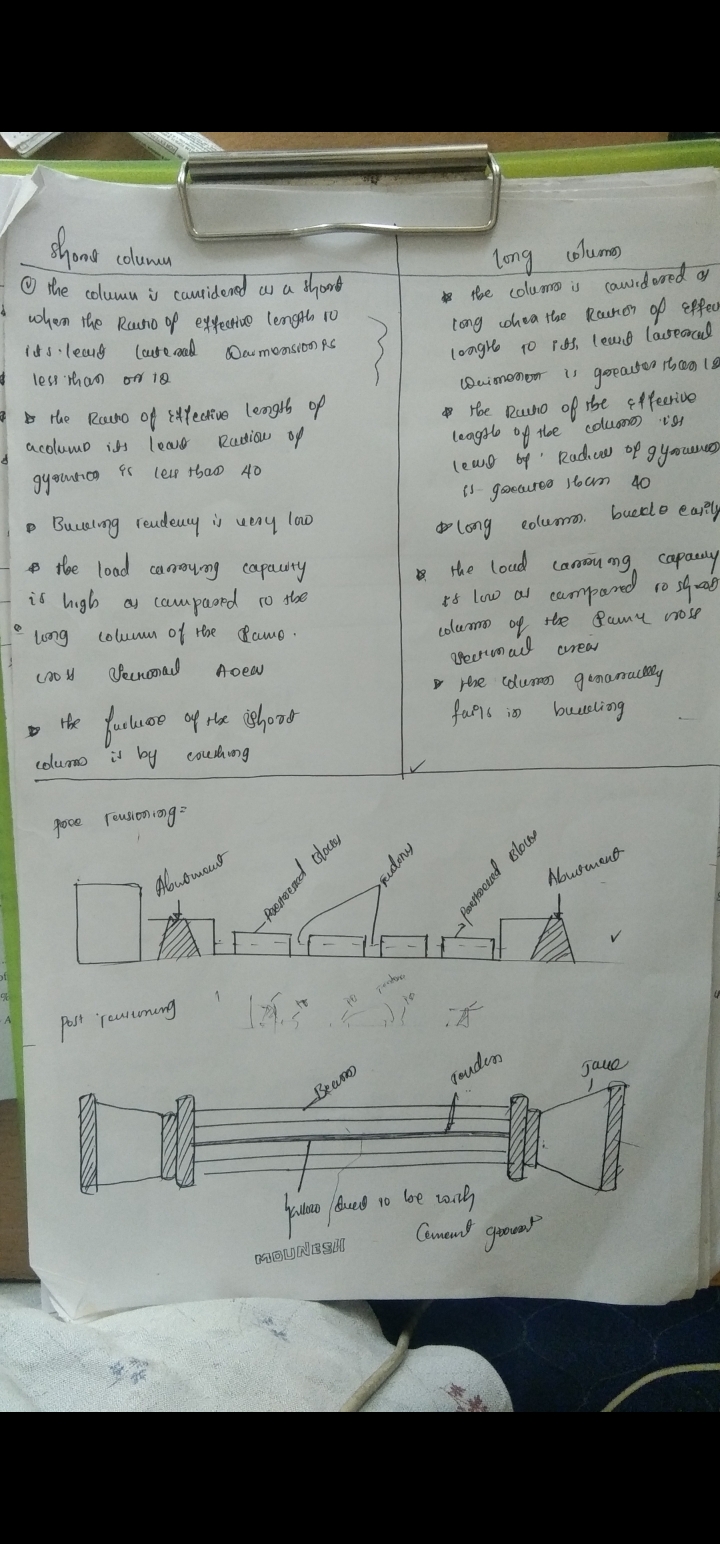 short column
the column is considered as a short
when the Ratio of effective length to
its least lateral Daimension is
less than or 12
the Ratio of Effective length of
a column its least Radius of
gyration is less than 40
Buckling tendency is very low
the load carrying capacity
is high as compared to the
long column of the same
cross Sectional Area
the failure of the short
column is by crushing
long column
the column is considered as
long when the Ratio of effec
length to its least lateral
Daimension is greater than 12
the Ratio of the effective
length of the column its
least of Radius of gyration
is greater than 40
long column buckle easily
the load carrying capacity
is low as compared to short
column of the same cross
sectional area
the column generally
fails in buckling
pre tensioning =
Abutment
Prestressed Blocks
Tendons
Prestressed Blocks
Abutment
post tensioning
Beam
Tendon
duct to be with
Cement grout
MOUNESH